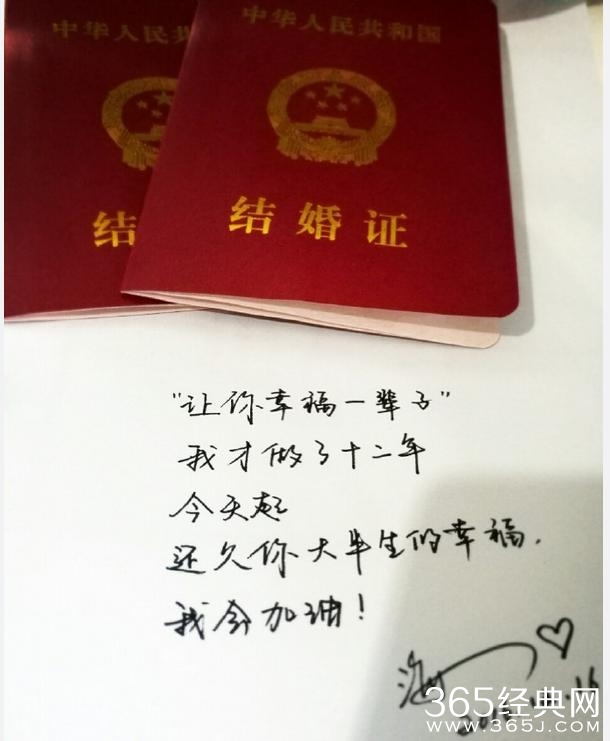 中华人民共
中华人民共和国
结
结婚证
"让你幸福一辈子"
我才做了十二年
今天起
还欠你大半生的幸福.
我会加油!
365经典网
WWW.365J.COM